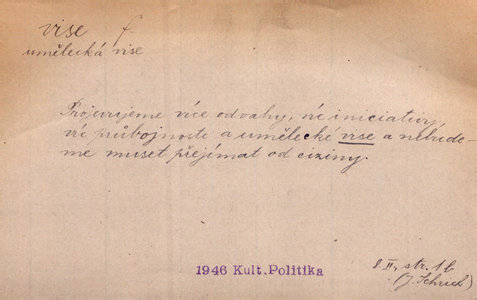 vise f.
umělecká vise
Projevujeme více odvahy, víc iniciativy,
víc průbojnosti a umělecké vise a nebude-
me muset přejímat od ciziny.
1946 Kult. Politika
8. II, str. 1b